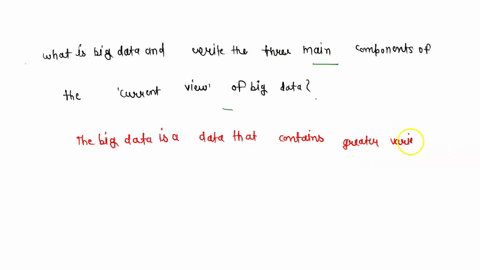 what is big data and write the three main components of
the 'current view' of big data?
The big data is a data that contains greater varie